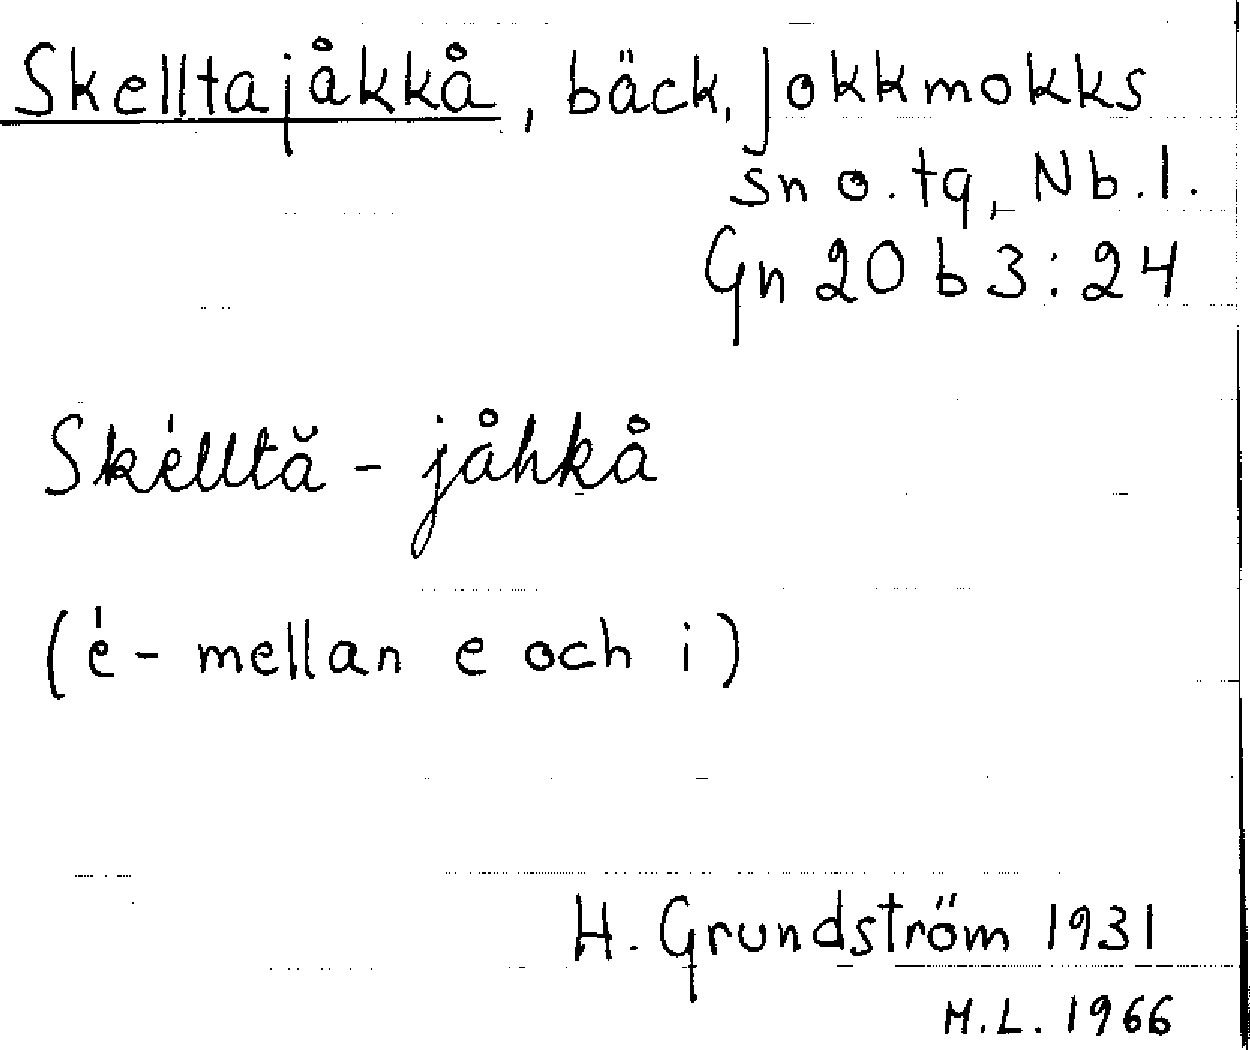 Skelltajåkkå, bäck, Jokkmokks
sn o. tg, Nb. l.
Gn 20 b 3:24
Skėlltă - jåhkå
(ė - mellan e och i)
H. Grundström 1931
M.L. 1966